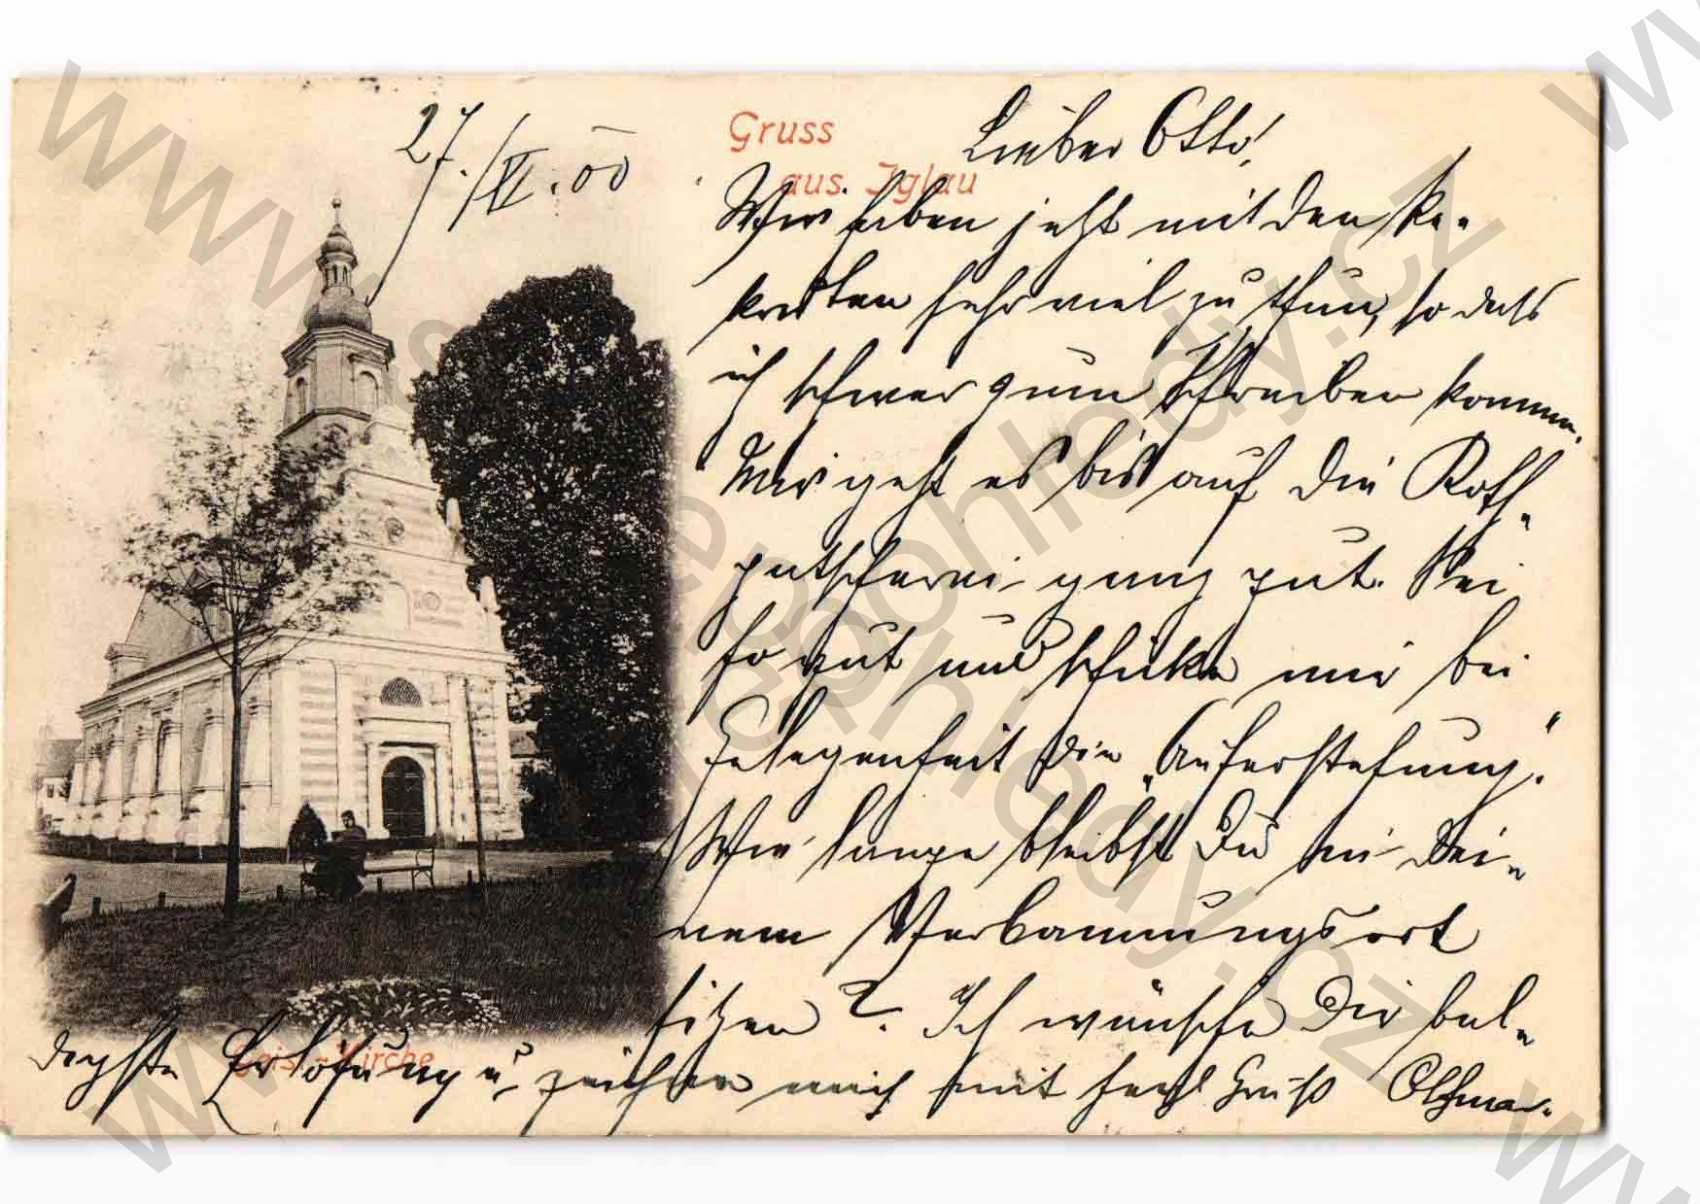 27./VI. 00
Gruss
aus Iglau
Lieber Otto!
Wir haben jetzt mit den Re-
kruten sehr viel zu thun, so dass
ich schwer zum Schreiben komme.
Mir geht es bis auf die
ganz gut. Sei
so gut und schicke mir bei
Gelegenheit die „Auferstehung".
Wie lange bleibst Du in Dei-
nem Verbannungsort
sitzen?. Ich wünsche Dir bal-
digste Erlösung u. zeichne mich mit herzl. Gruß Othmar.
Geist-Kirche
www.pohledy.cz